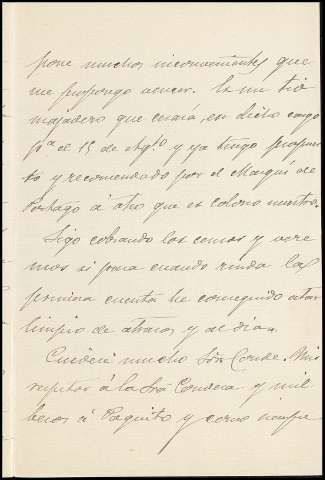 pone muchos inconvenientes que
me propongo vencer. Es un tio
majadero que cesará, en dicho cargo
pª el 15 de Agto y ya tengo propues
to y recomendado por el Marqués de
Portago á otro que es colono nuestro.
Sigo cobrando los censos y vere
mos si para cuando rinda la
próxima cuenta he conseguido estar
limpio de atrasos y al dia.
Cuídese mucho Sôr Conde. Mis
respetos á la Sra Condesa y mil
besos á Paquito y como siempre